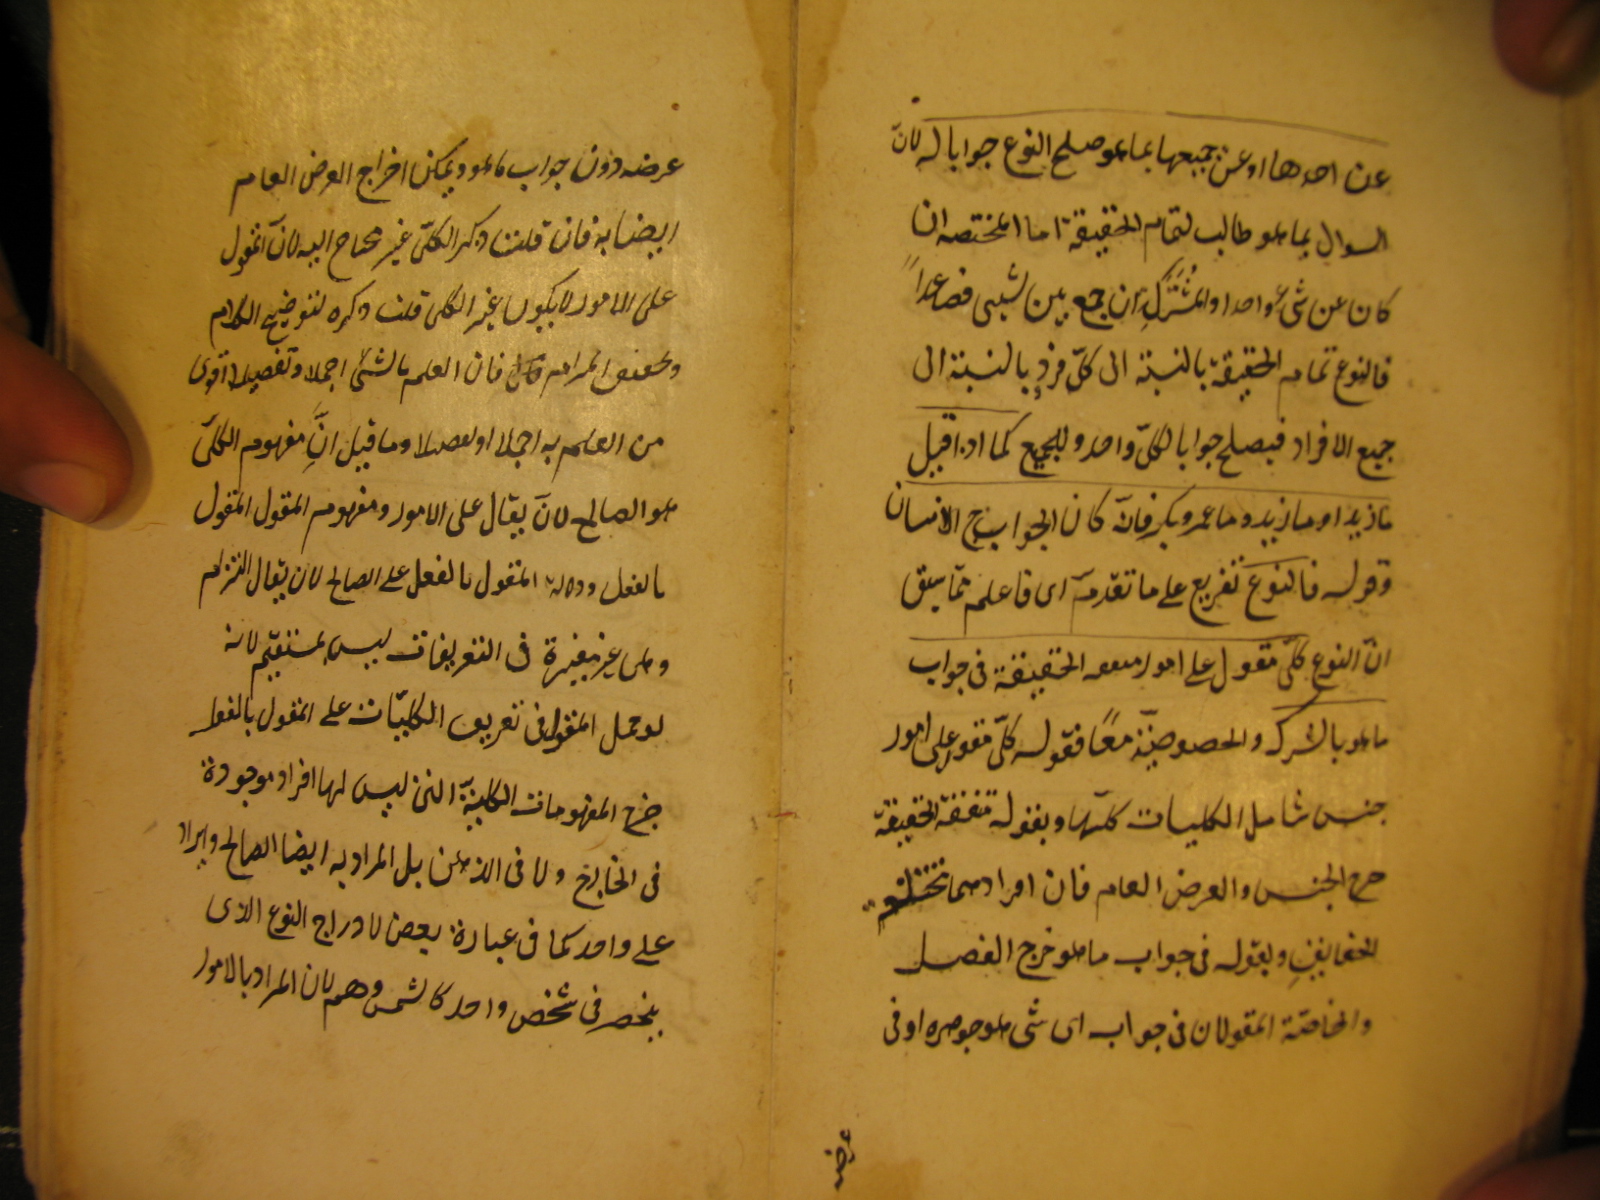 عن احدها او عن جميعها بما هو صلح النوع جوابا له لانّ
السوال بما هو طالب لتمام الحقيقة اما المختصة ان
كان عن شئ واحد او المشتركة ان جمع بين شيئين فصاعداً
فالنوع تمام الحقيقة بالنسبة الى كلّ فردٍ بالنسبة الى
جميع الافراد فيصلح جوابا لكلّ واحد وللجميع كما اذا قيل
ما زيد او ما زيد وما عمرو بكر فانّه كان الجواب ح الانسان
وقوله فالنوع تفريع على ما تقدمه اى فاعلم ممّا سبق
انّ النوع كلّى مقول على امور متفقه الحقيقة فى جواب
ما هو بالشركة والخصوصيّة معًا فقوله كلّى مقول على امور
جنس شامل الكليات كلّها وبقوله متفقة الحقيقة
خرج الجنس والعرض العام فان افرادهما مختلفة
الحقايق وبقوله فى جواب ما هو خرج الفصل
والخاصّة المقولان فى جواب اى شئ هو جوهره او فى
عرضه
عرضه دون جواب ما هو ويمكن اخراج العرض العام
ايضا به فان قلت ذكر الكلّى غير محتاج اليه لانّ المقول
على الامور لا يكون غير الكلى قلت ذكره لتوضيح الكلام
وتحقيق المرام فان العلم بالشئ اجملا وتفصيلا اقوى
من العلم به اجملا او تفصيلا وما قيل انّ مفهوم الكلّى
هو الصالح لانّ يقال على الامور ومفهوم المقول المقول
بالفعل ودلالة المقول بالفعل على الصالح لان يقال التزام
وهى غير معتبرة فى التعريفات ليس بمستقيم لانه
لو حمل المقول فى تعريف الكليّات على المقول بالفعل
خرج المفهومات الكلية التى ليس لها افراد موجودة
فى الخارج ولا فى الذهن بل المراد به ايضا الصالح وايراد
على واحد كما فى عبارة بعض لادراج النوع الذى
ينحصر فى شخص واحد كالشمس وهم لان المراد بالامور